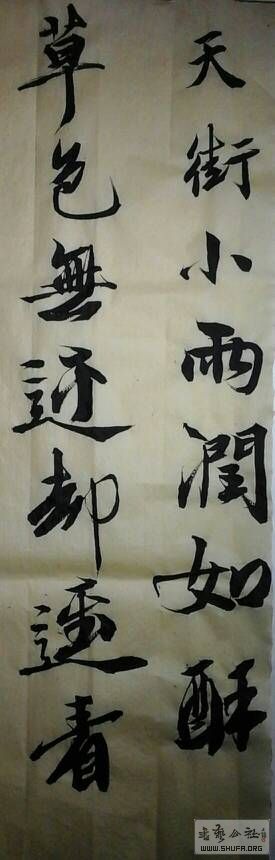 天街小雨潤如酥
草色無近却遥看
书艺公社
WWW.SHUFA.ORG